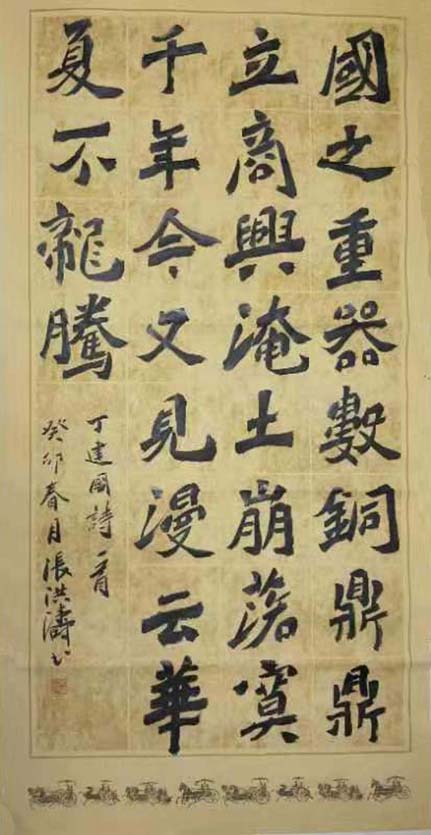 國之重器數銅鼎鼎
立商興淹土崩落寞
千年今又見漫云華
夏不龍騰
丁建國詩一首
癸卯春月張洪濤書